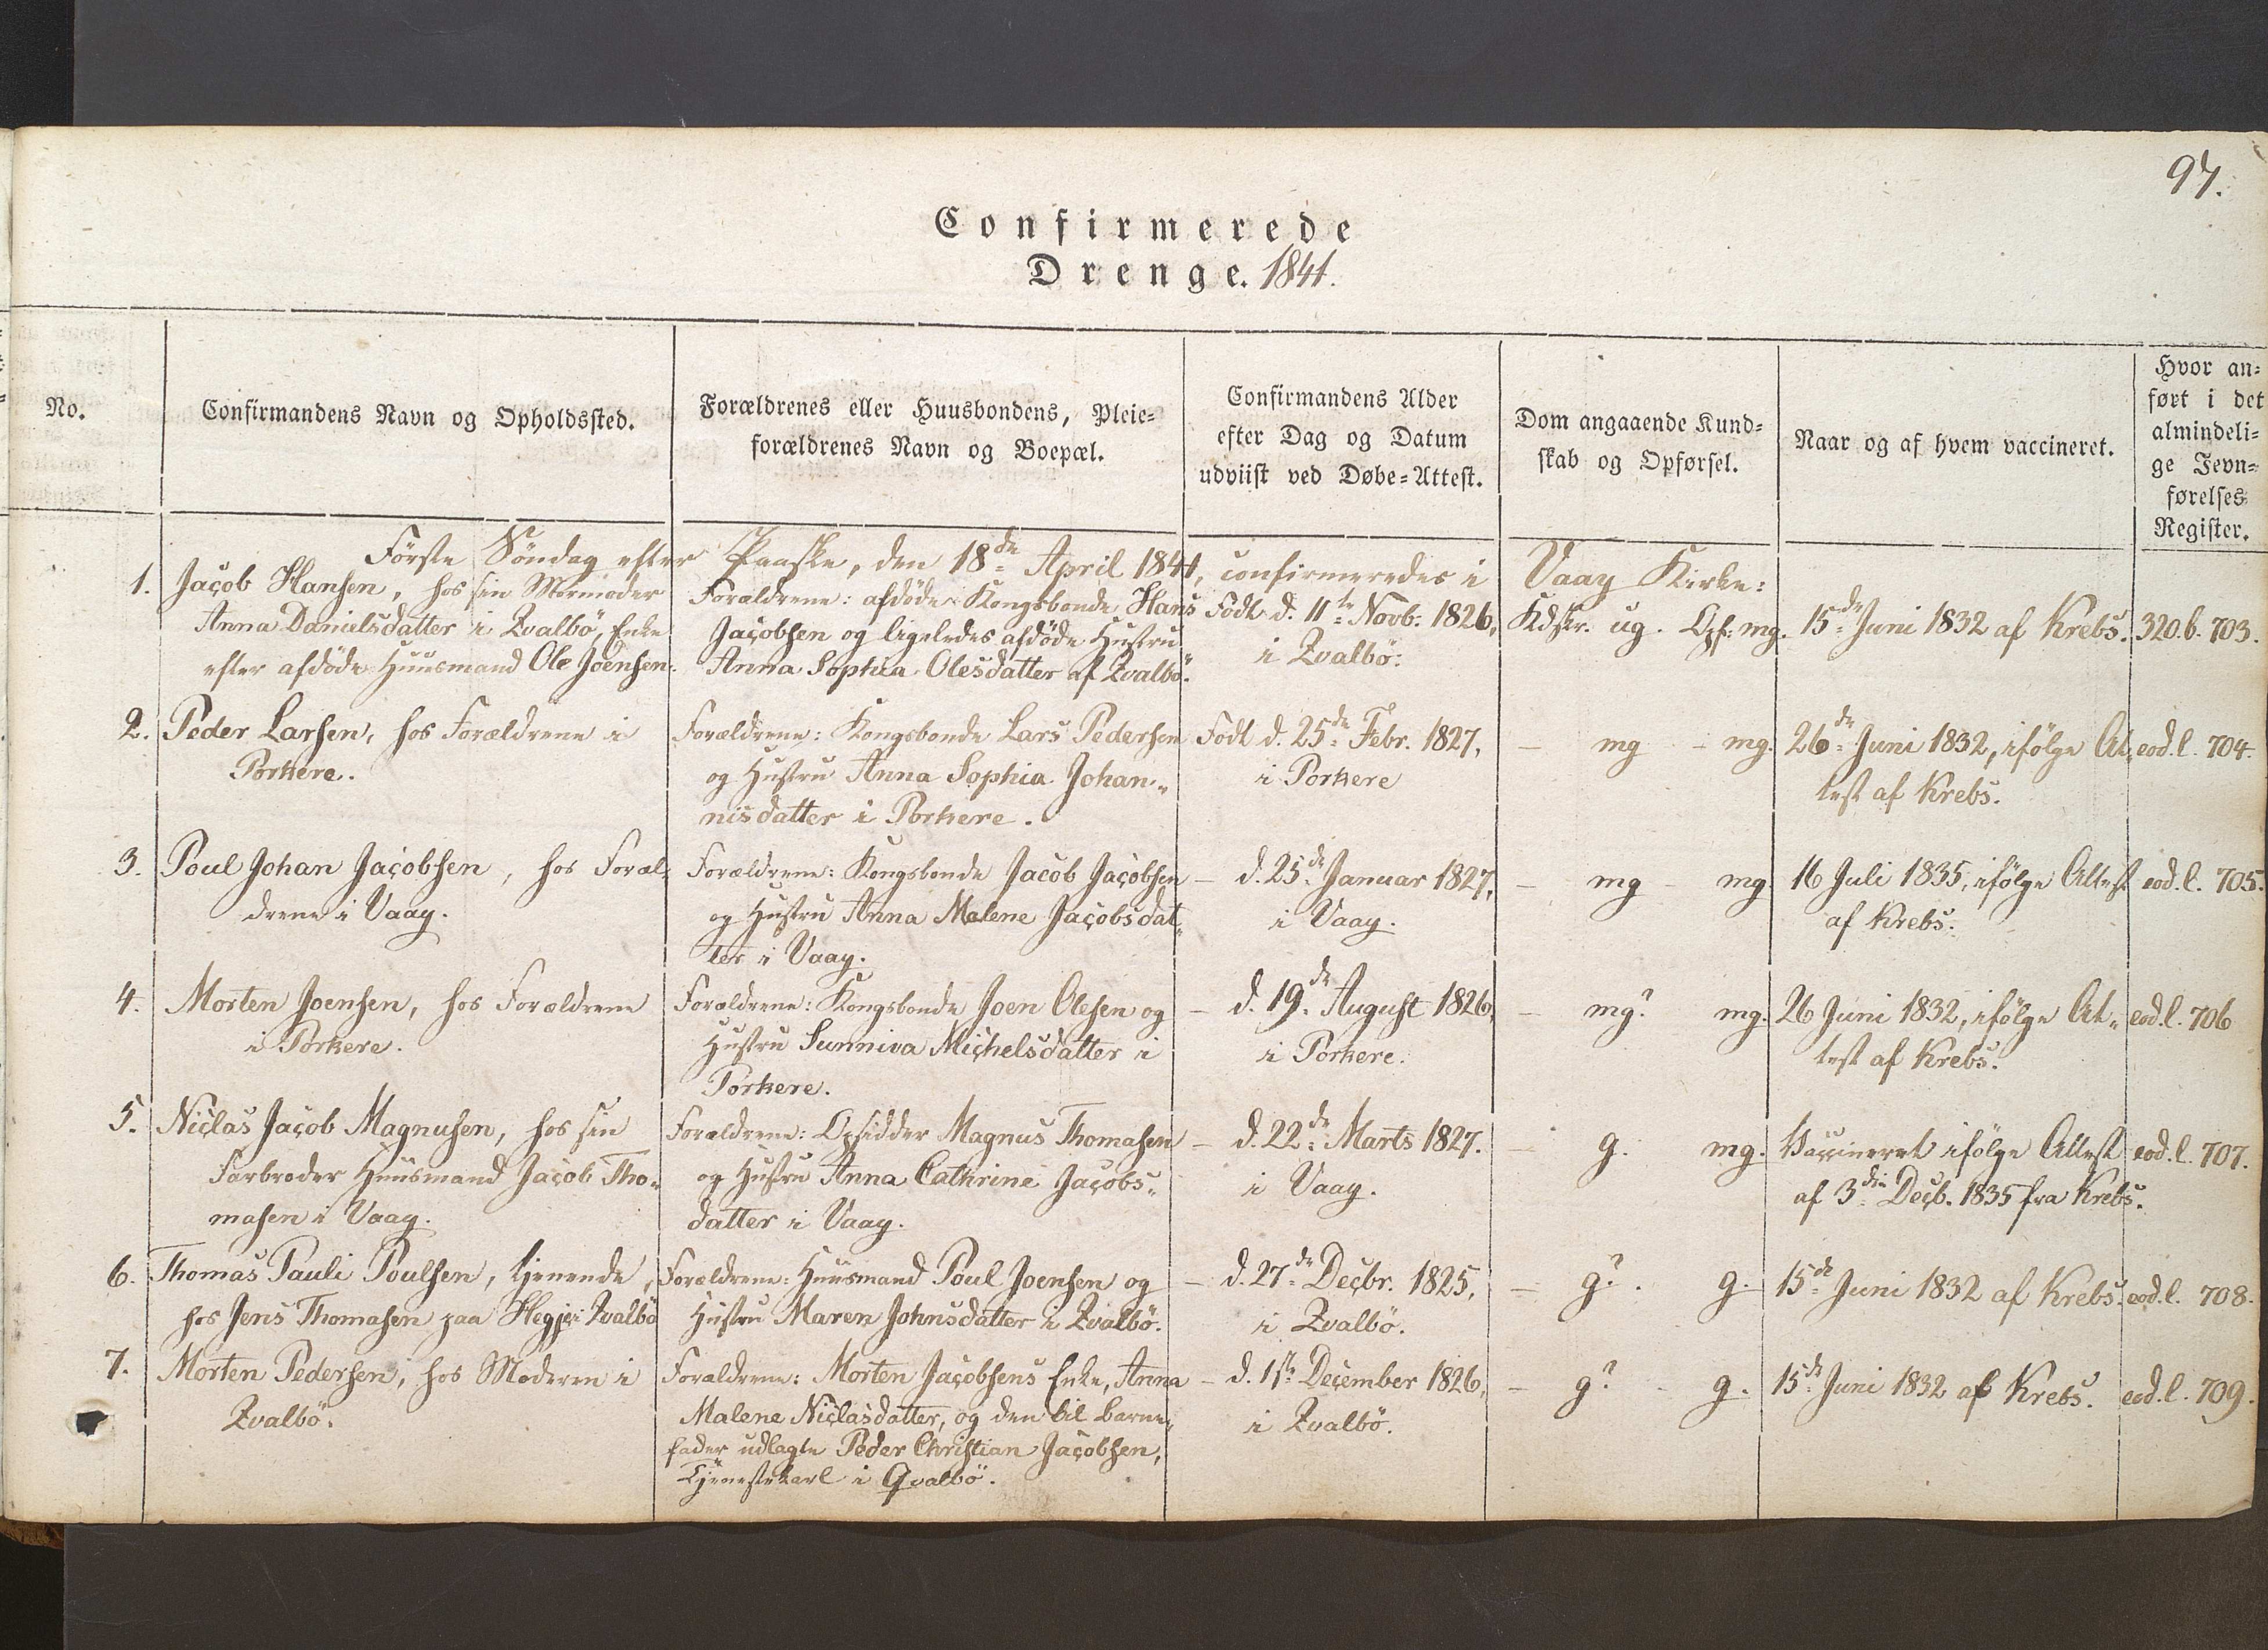 97.
Confirmerede
Drenge. 1841.
No.
Confirmandens Navn og Opholdssted.
Forældrenes eller Huusbondens, Pleie=
forældrenes Navn og Boepæl.
Confirmandens Alder
efter Dag og Datum
udviist ved Døbe=Attest.
Dom angaaende Kund=
skab og Opførsel.
Naar og af hvem vaccineret.
Hvor an=
ført i det
almindeli=
ge Jevn=
førelses
Register.
Første Söndag efter Paaske, den 18de April 1841, confirmeredes i Vaag Kirke:
1.
Jacob Hansen, hos sin Mormoder
Anna Danielsdatter i Qvalbö, Enke
efter afdöde Huusmand Ole Joensen.
Forældrene: afdöde Kongsbonde Hans
Jacobsen og ligeledes afdöde Hustru
Anna Sophia Olesdatter af Qvalbö.
Födt d. 11te Novb: 1826,
i Qvalbö:
Kdskr. ug. Opf: mg.
15de Juni 1832 af Krebs.
320.b. 703.
2.
Peder Larsen, hos Forældrene i
Porkere.
Forældrene: Kongsbonde Lars Pedersen
og Hustru Anna Sophia Johan„
nisdatter i Porkere.
Födt d. 25de Febr. 1827,
i Porkere
— mg — mg.
26de Juni 1832, ifölge At„
test af Krebs.
eod. l. 704.
3.
Poul Johan Jacobsen, hos Foræl„
drene i Vaag.
Forældrene: Kongsbonde Jacob Jacobsen
og Hustru Anna Malene Jacobsdat„
ter i Vaag.
— d. 25de Januar 1827,
i Vaag.
— mg — mg
16 Juli 1835, ifölge Attest
af Krebs.
eod. l. 705.
4.
Morten Joensen, hos Forældrene
i Porkere.
Forældrene: Kongsbonde Joen Olesen og
Hustru Sunniva Michelsdatter i
Porkere.
— d. 19de August 1826,
i Porkere.
— mg? mg.
26 Juni 1832, ifölge At„
test af Krebs.
eod. l. 706
5.
Niclas Jacob Magnusen, hos sin
Farbroder Huusmand Jacob Tho„
masen i Vaag.
Forældrene: Opsidder Magnus Thomasen
og Hustru Anna Cathrine Jacobs„
datter i Vaag.
— d. 22de Marts 1827.
i Vaag.
— g. mg.
Vaccineret ifölge Attest
af 3die Decb. 1835 fra Krebs.
eod. l. 707.
6.
Thomas Pauli Poulsen, tjenende
hos Jens Thomasen paa Hegje i Qvalbö
Forældrene: Huusmand Poul Joensen og
Hustru Maren Johnsdatter i Qvalbö.
— d. 27de Decbr. 1825,
i Qvalbö.
— g? . g.
15de Juni 1832 af Krebs.
eod. l. 708.
7.
Morten Pedersen, hos Moderen i
Qvalbö.
Forældrene: Morten Jacobsens Enke, Anna
Malene Niclasdatter, og den til Barne„
fader udlagte Peder Christian Jacobsen,
Tjenestekarl i Qvalbö.
— d. 1ste December 1826,
i Qvalbö.
— g? — g.
15de Juni 1832 af Krebs.
eod. l. 709.